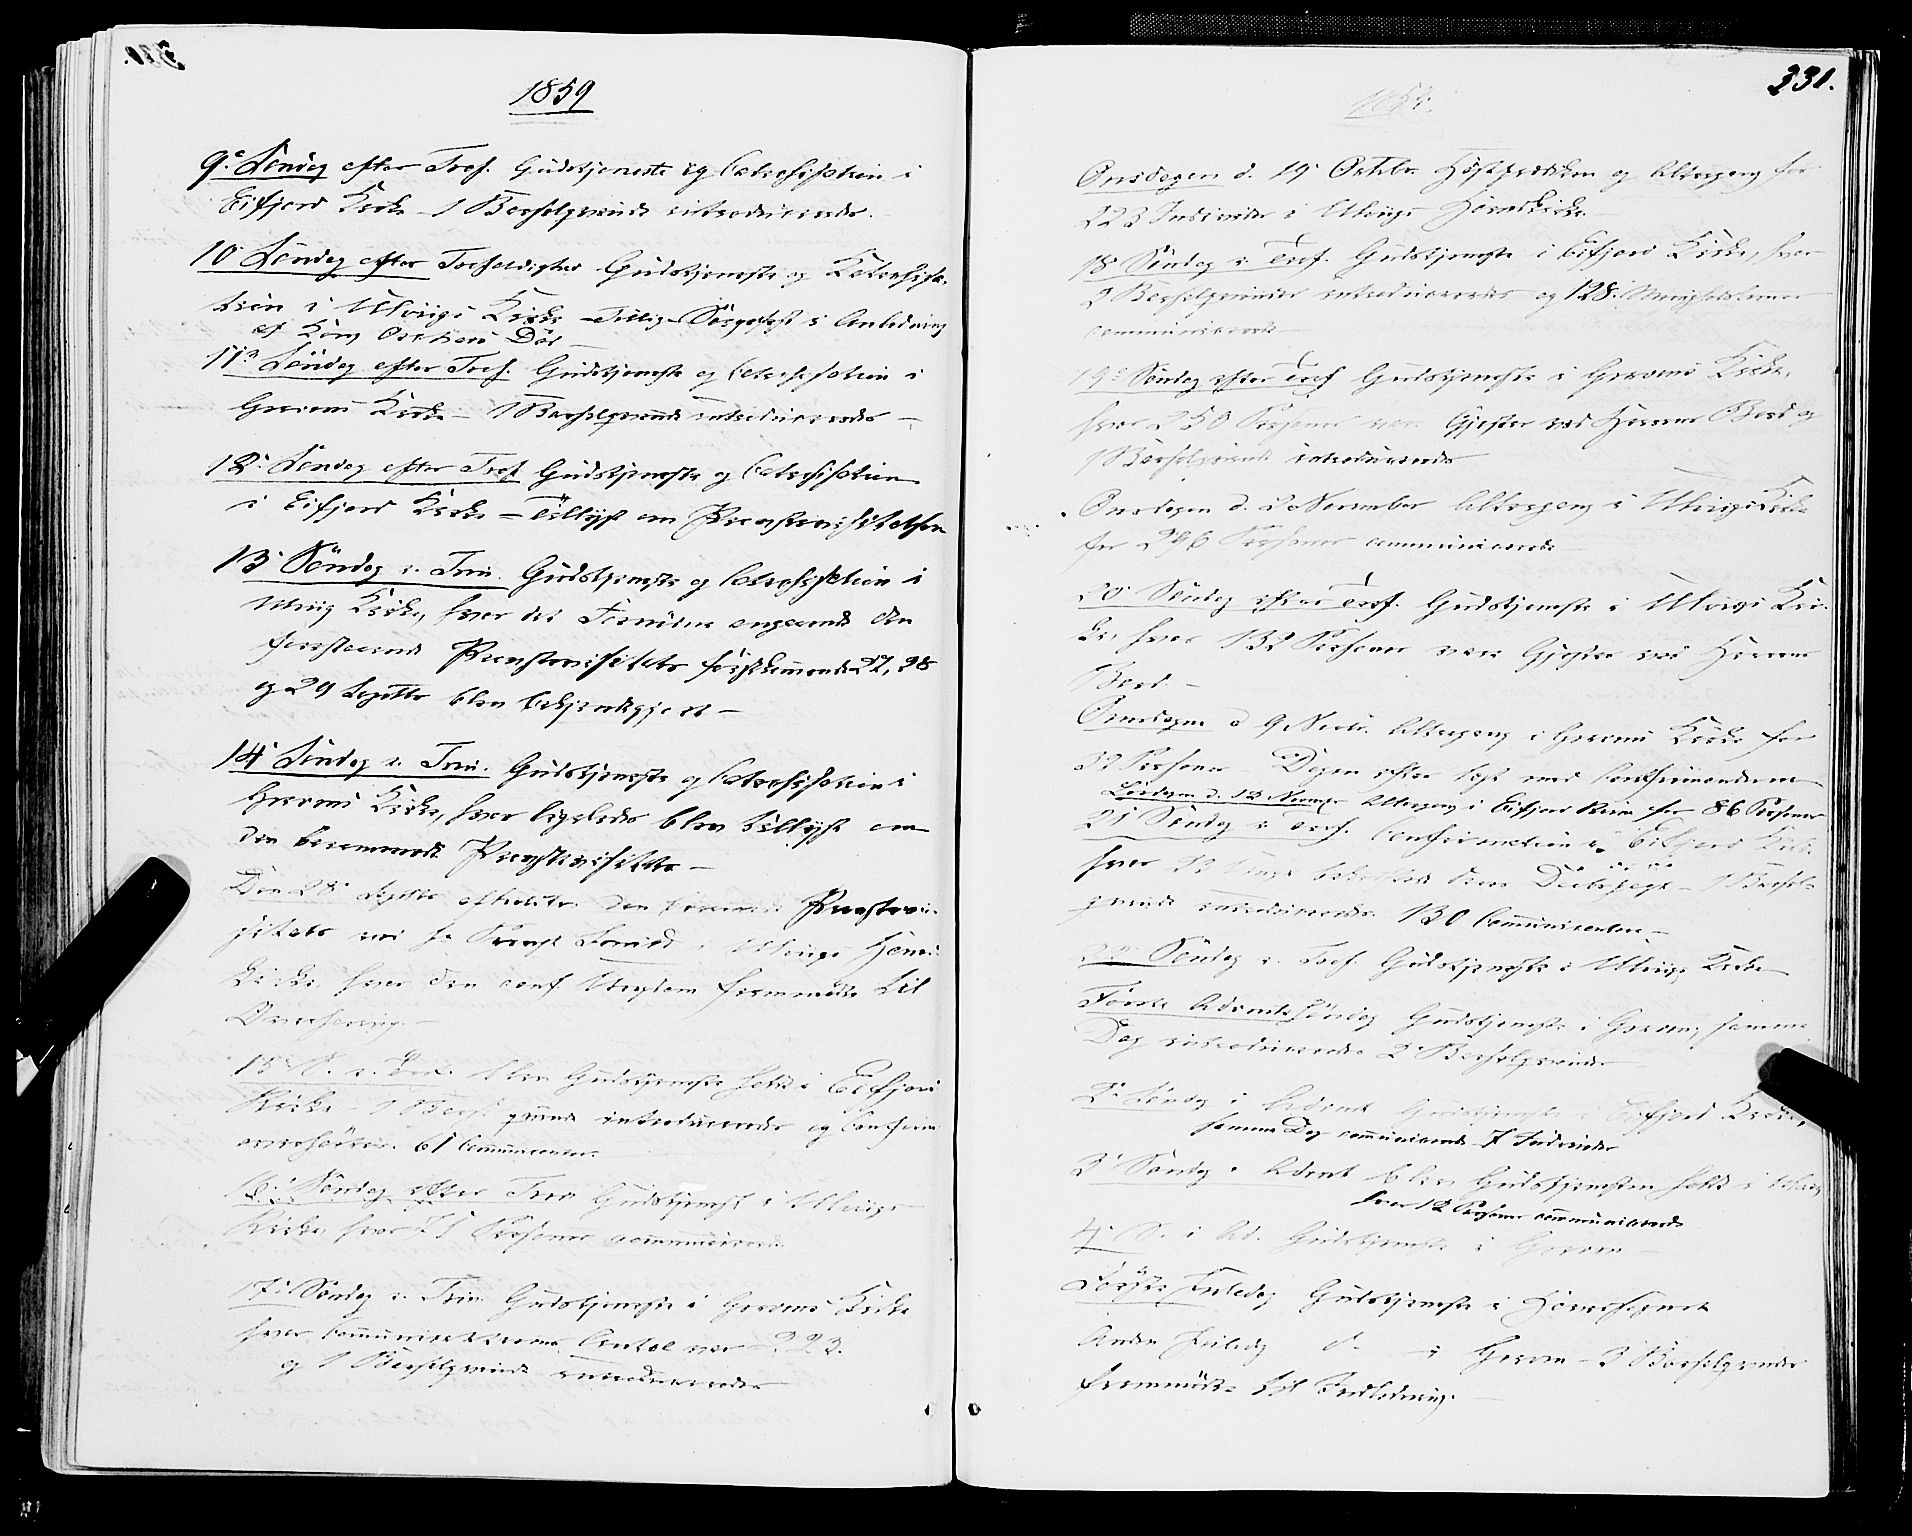 1859
9de Søndag efter Tref. Gudstjeneste og Catechisation i
Eifjord Kirke – 1 Barselqvinde introduceredes.
10 Søndag efter Trefoldighed Gudstjeneste og Katechisa-
tion i Ulviigs Kirke – Tillige Sørgefest i Anledning
af Kong Oschars Død –
11te Søndag efter Tref. Gudstjeneste og Catechisation i
Gravens Kirke – 1 Barselqvinde introduceredes –
12. Søndag efter Tref. Gudstjeneste og Catechisation
i Eifjord Kirke – Tillyst om Provstevisitatsen
13 Søndag e. Trin. Gudstjeneste og Catechisation i
Ulviig Kirke, hvor det Fornødne angaaende den
forestaaende Provstevisitats førstkommende 27, 28
og 29 Septbr blev bekjendtgjort –
14 Søndag e. Trin. Gudstjeneste og Catechisation i
Gravens Kirke, hvor ligeledes blev tillyst om
den berammede Provstevisitats –
Den 28 Septbr afholdtes den Provstevi-
sitats ved Hr Provst i Ulvigs Hoved-
kirke, hvor den conf. Ungdom fremmødte til
Overhøring. –
15de S. e. Trin. blev Gudstjeneste holdt i Eifjord
Kirke – 1 Barselqvinde introduceredes og
61 Communicanter.
16. Søndag efter Tref. Gudstjeneste i Ulvigs
Kirke hvor 71 Personer communicerede
17. Søndag e. Trin. Gudstjeneste i Gravens Kirke
hvor Communicanternes Antal var 223.
og 1 Barselqvinde introduceredes
331.
1859.
Onsdagen d. 19 Octbr. Høstprædiken og Altergang for
223 Individer i Ulvigs Hovedkirke –
18 Søndag e. Tref. Gudstjeneste i Eifjord Kirke, hvor
2 Barselqvinder introduceredes og 128 Menighedslemmer
communicerede –
19de Søndag efter Tref Gudstjeneste i Gravens Kirke,
hvor 250 Personer vare Gjester ved Herrens Bord og
1 Barselqvinde introduceredes
Onsdagen d. 2 November Altergang i Ulvigs Kirke
for 296 Personer communicerede –
20 Søndag efter Tref. Gudstjeneste i Ulvigs Kir-
ke, hvor 132 Personer vare Gjester ved Herrens
Bord. –
Onsdagen d. 9 Novbr. Altergang i Gravens Kirke for
32 Personer Dagen efter Confirmanderne
Lørdagen d. 12 Novemb Altergang i Eifjord Kirke for 86 Personer
21 Søndag e. Tref. Confirmation i Eifjord Kirke
hvor 23 Unge bekræftede deres Daabspagt – 1 Barsel-
qvinde introduceredes 130 Communicanter –
22 Søndag e. Tref. Gudstjeneste i Ulvigs Kirke
Første Adventssøndag Gudstjeneste i Graven, samme
Dag introduceredes 2 Barselqvinder
2. Søndag i Advent Gudstjeneste i Eifjord Kirke,
samme Dag communicerede 7 Individer
3 Søndag i Advent blev Gudstjenesten holdt i Ulvig
hvor 12 Personer communicerede
4 S. i Ad. Gudstjeneste i Graven –
Første Juledag Gudstjeneste i Hovedsognet
Anden Juledag do – i Graven – 3 Barselqvinder
fremmødte til Indledning. –